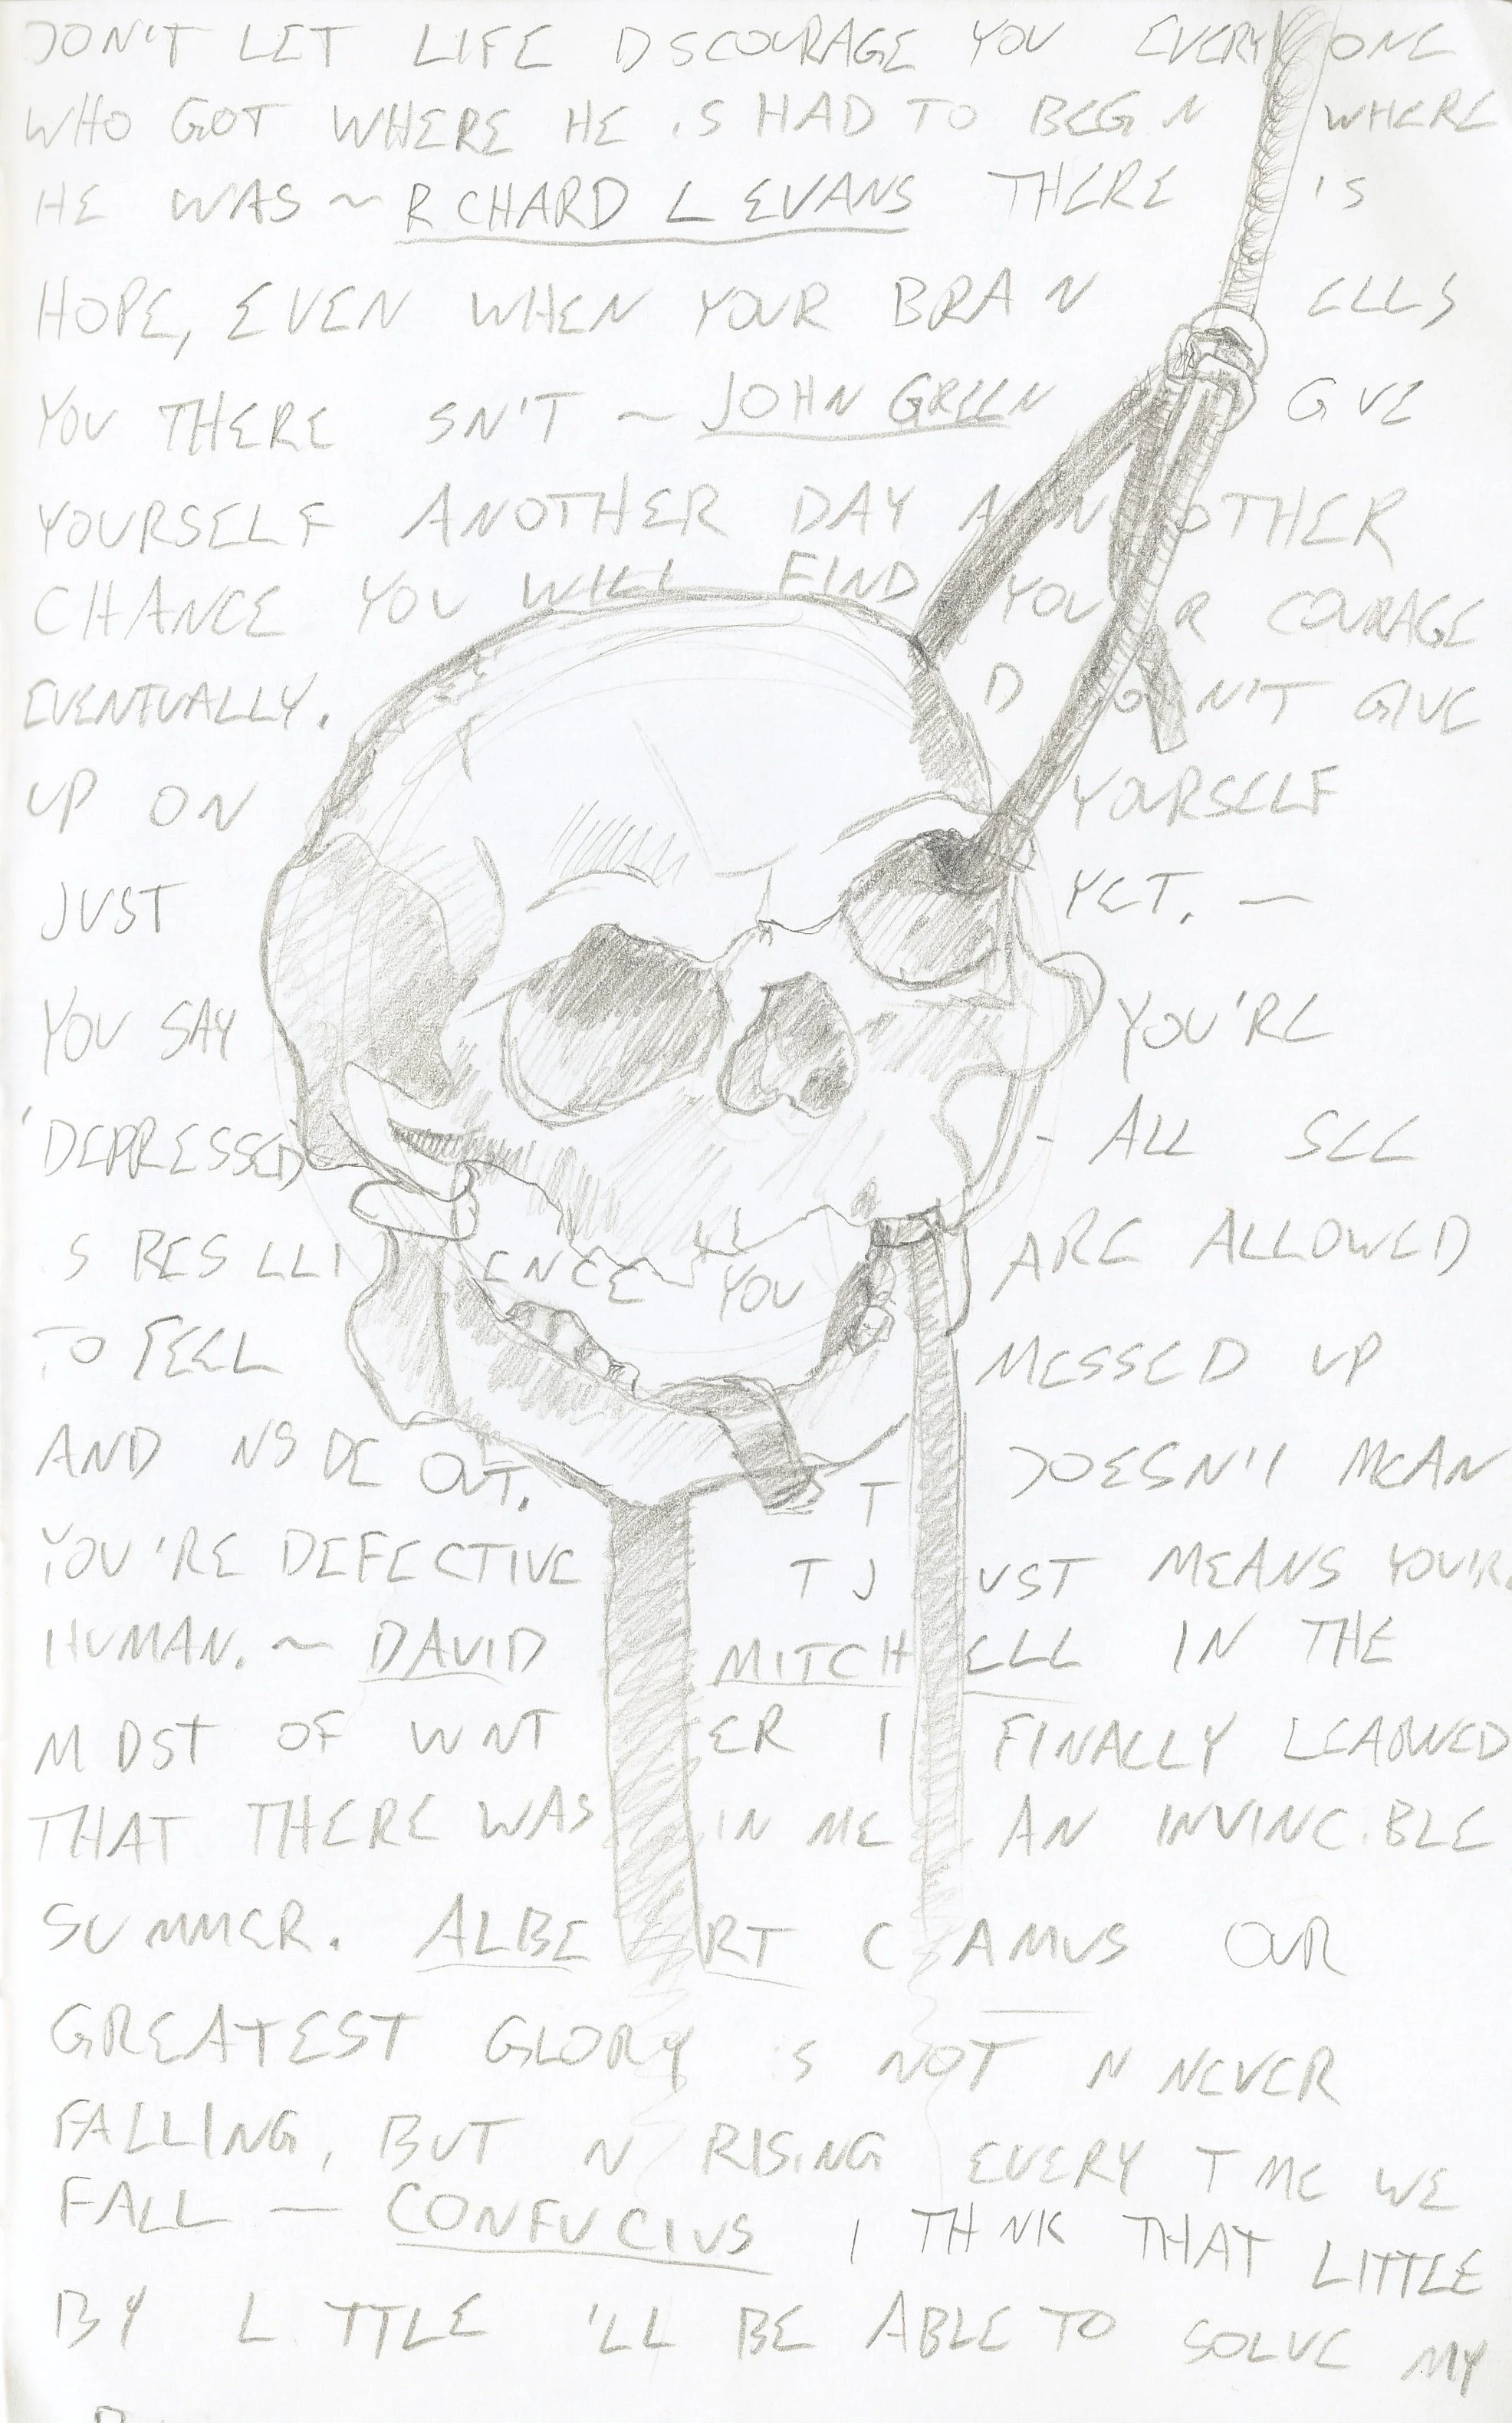 DON'T LET LIFE D SCOURAGE YOU EVERY ONE
WHO GOT WHERE HE IS HAD TO BEG N WHERE
HE WAS ~ R CHARD L EVANS THERE IS
HOPE, EVEN WHEN YOUR BRA N ELLS
YOU THERE SN'T ~ JOHN GREEN G VE
YOURSELF ANOTHER DAY AN OTHER
CHANCE YOU WILL FIND YOU R COURAGE
EVENTUALLY. D O N'T GIVE
UP ON YOURSELF
JUST YET. —
YOU SAY YOU'RE
'DEPRESSED' - ALL SEE
S RES LLI ENCE YOU ARE ALLOWED
TO FEEL MESSED UP
AND NS DE OUT. T DOESN'T MEAN
YOU'RE DEFECTIVE T J UST MEANS YOU'RE
HUMAN. ~ DAVID MITCH ELL IN THE
M DST OF W NT ER I FINALLY LEARNED
THAT THERE WAS IN ME AN INVINCIBLE
SUMMER. ALBE RT C AMUS OUR
GREATEST GLORY IS NOT N NEVER
FALLING, BUT N RISING EVERY T ME WE
FALL — CONFUCIUS I TH NK THAT LITTLE
BY L TTLE 'LL BE ABLE TO SOLVE MY